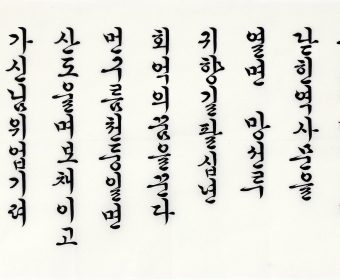 난한역사문을
열면 망천루
귀향길팔십년
회억의꿈을꾼다
먼구름천둥일면
산도울며보채이고
가신님위업기려